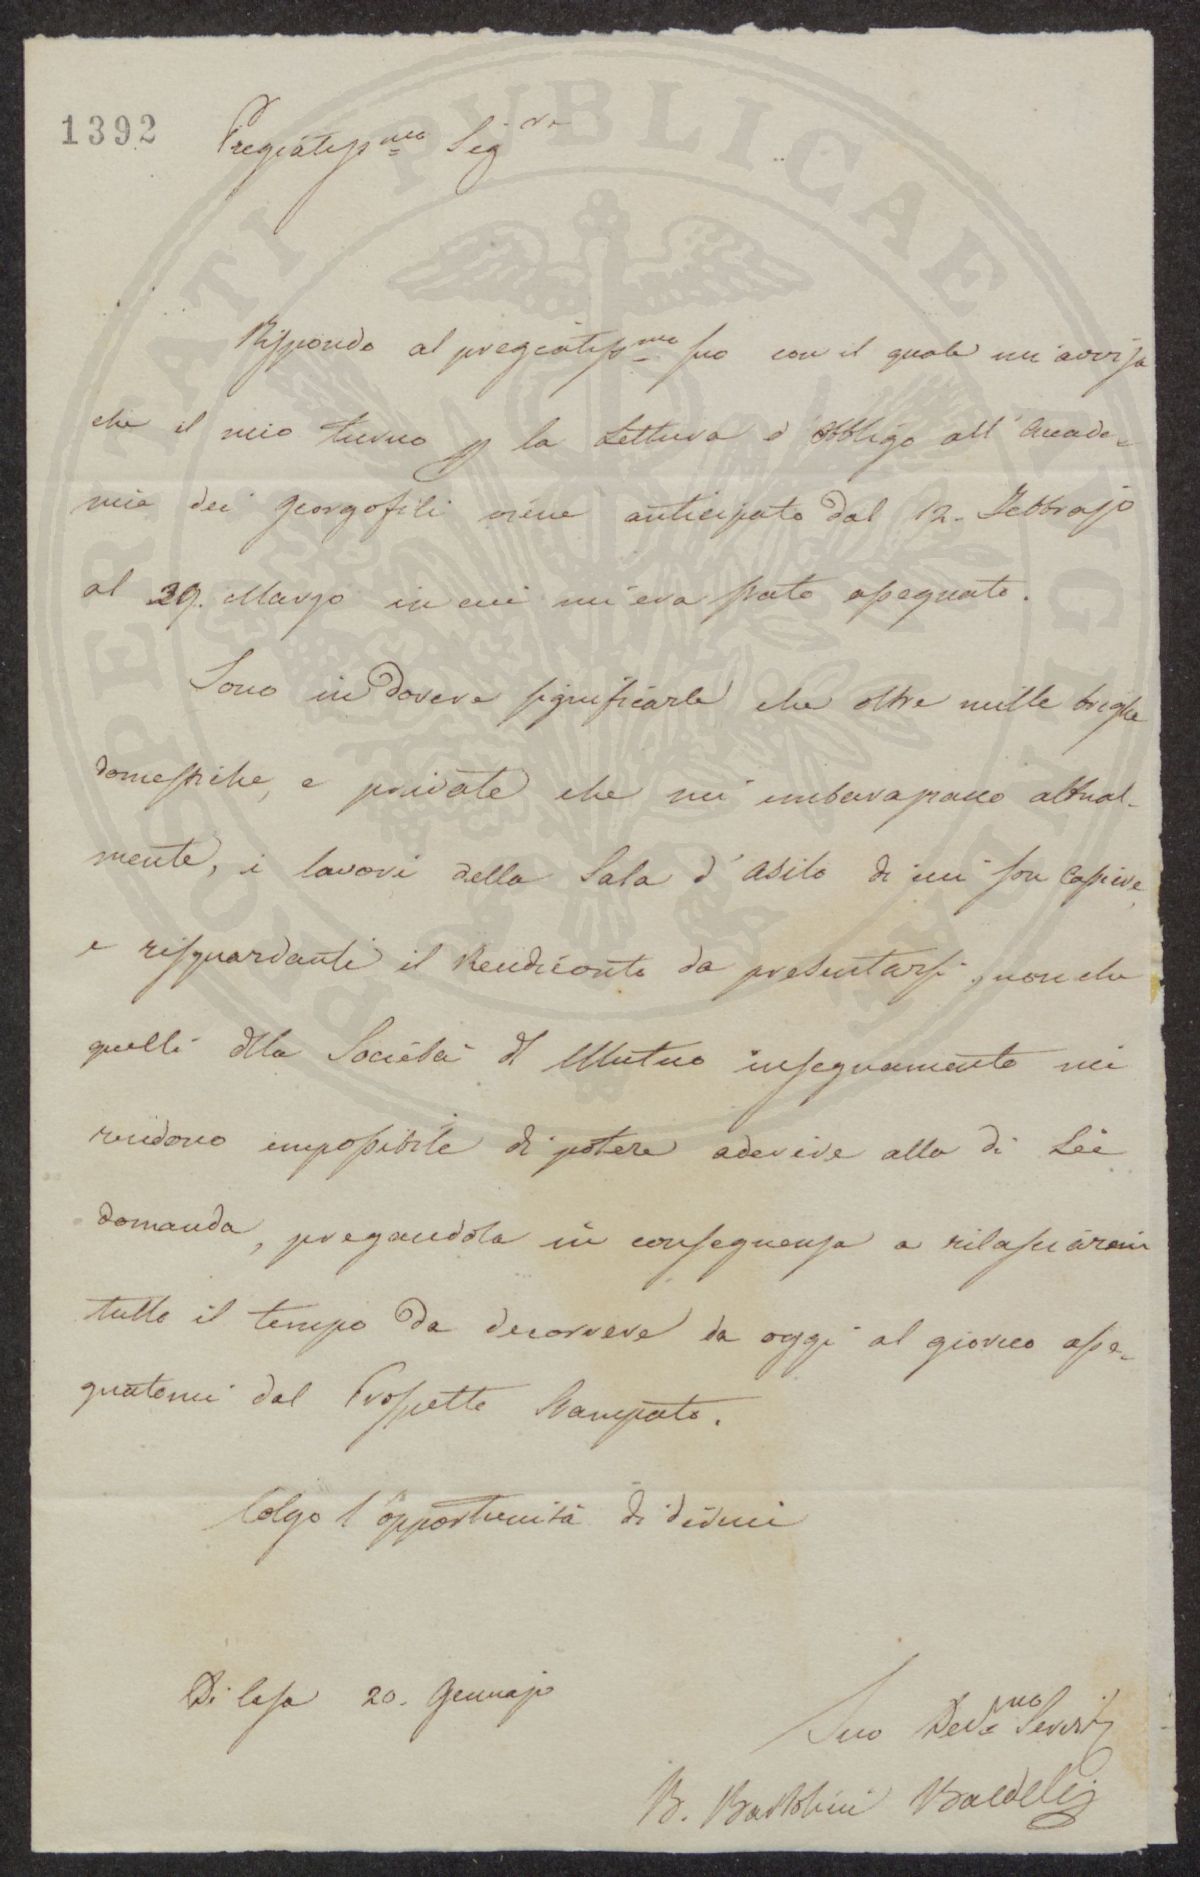 1392
Pregiatissmo Sigre
Rispondo al pregiatissmo suo con il quale mi avvisa
che il mio turno p la Lettura d'obbligo all'Accade-
mia dei Georgofili viene anticipato dal 12. Febbrajo
al 29. Marzo in cui mi era stato assegnato.
Sono in dovere significarle che oltre mille brighe
domestiche, e private che mi imbarazzano attual-
mente, i lavori della Sala d'Asilo di cui son Cassiere,
e risguardanti il Rendiconto da presentarsi, non che
quelli della Società del Mutuo insegnamento mi
rendono impossibile di potere aderire alla di Lei
domanda, pregandola in conseguenza a rilasciarmi
tutto il tempo da decorrere da oggi al giorno asse-
gnatomi dal Prospetto Stampato.
Colgo l'opportunità di dirmi
Di Casa 20. Gennajo
Suo Devmo Servit
B. Bartolini Baldelli
PROSPERITATI PVBLICAE AVGENDAE